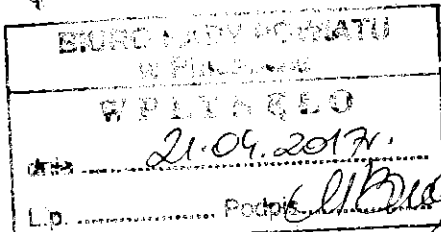 BIURO RADY POWIATU
w
WPŁYNĘŁO
dnia 21.04.2017r.
L.p. .................... Podpis